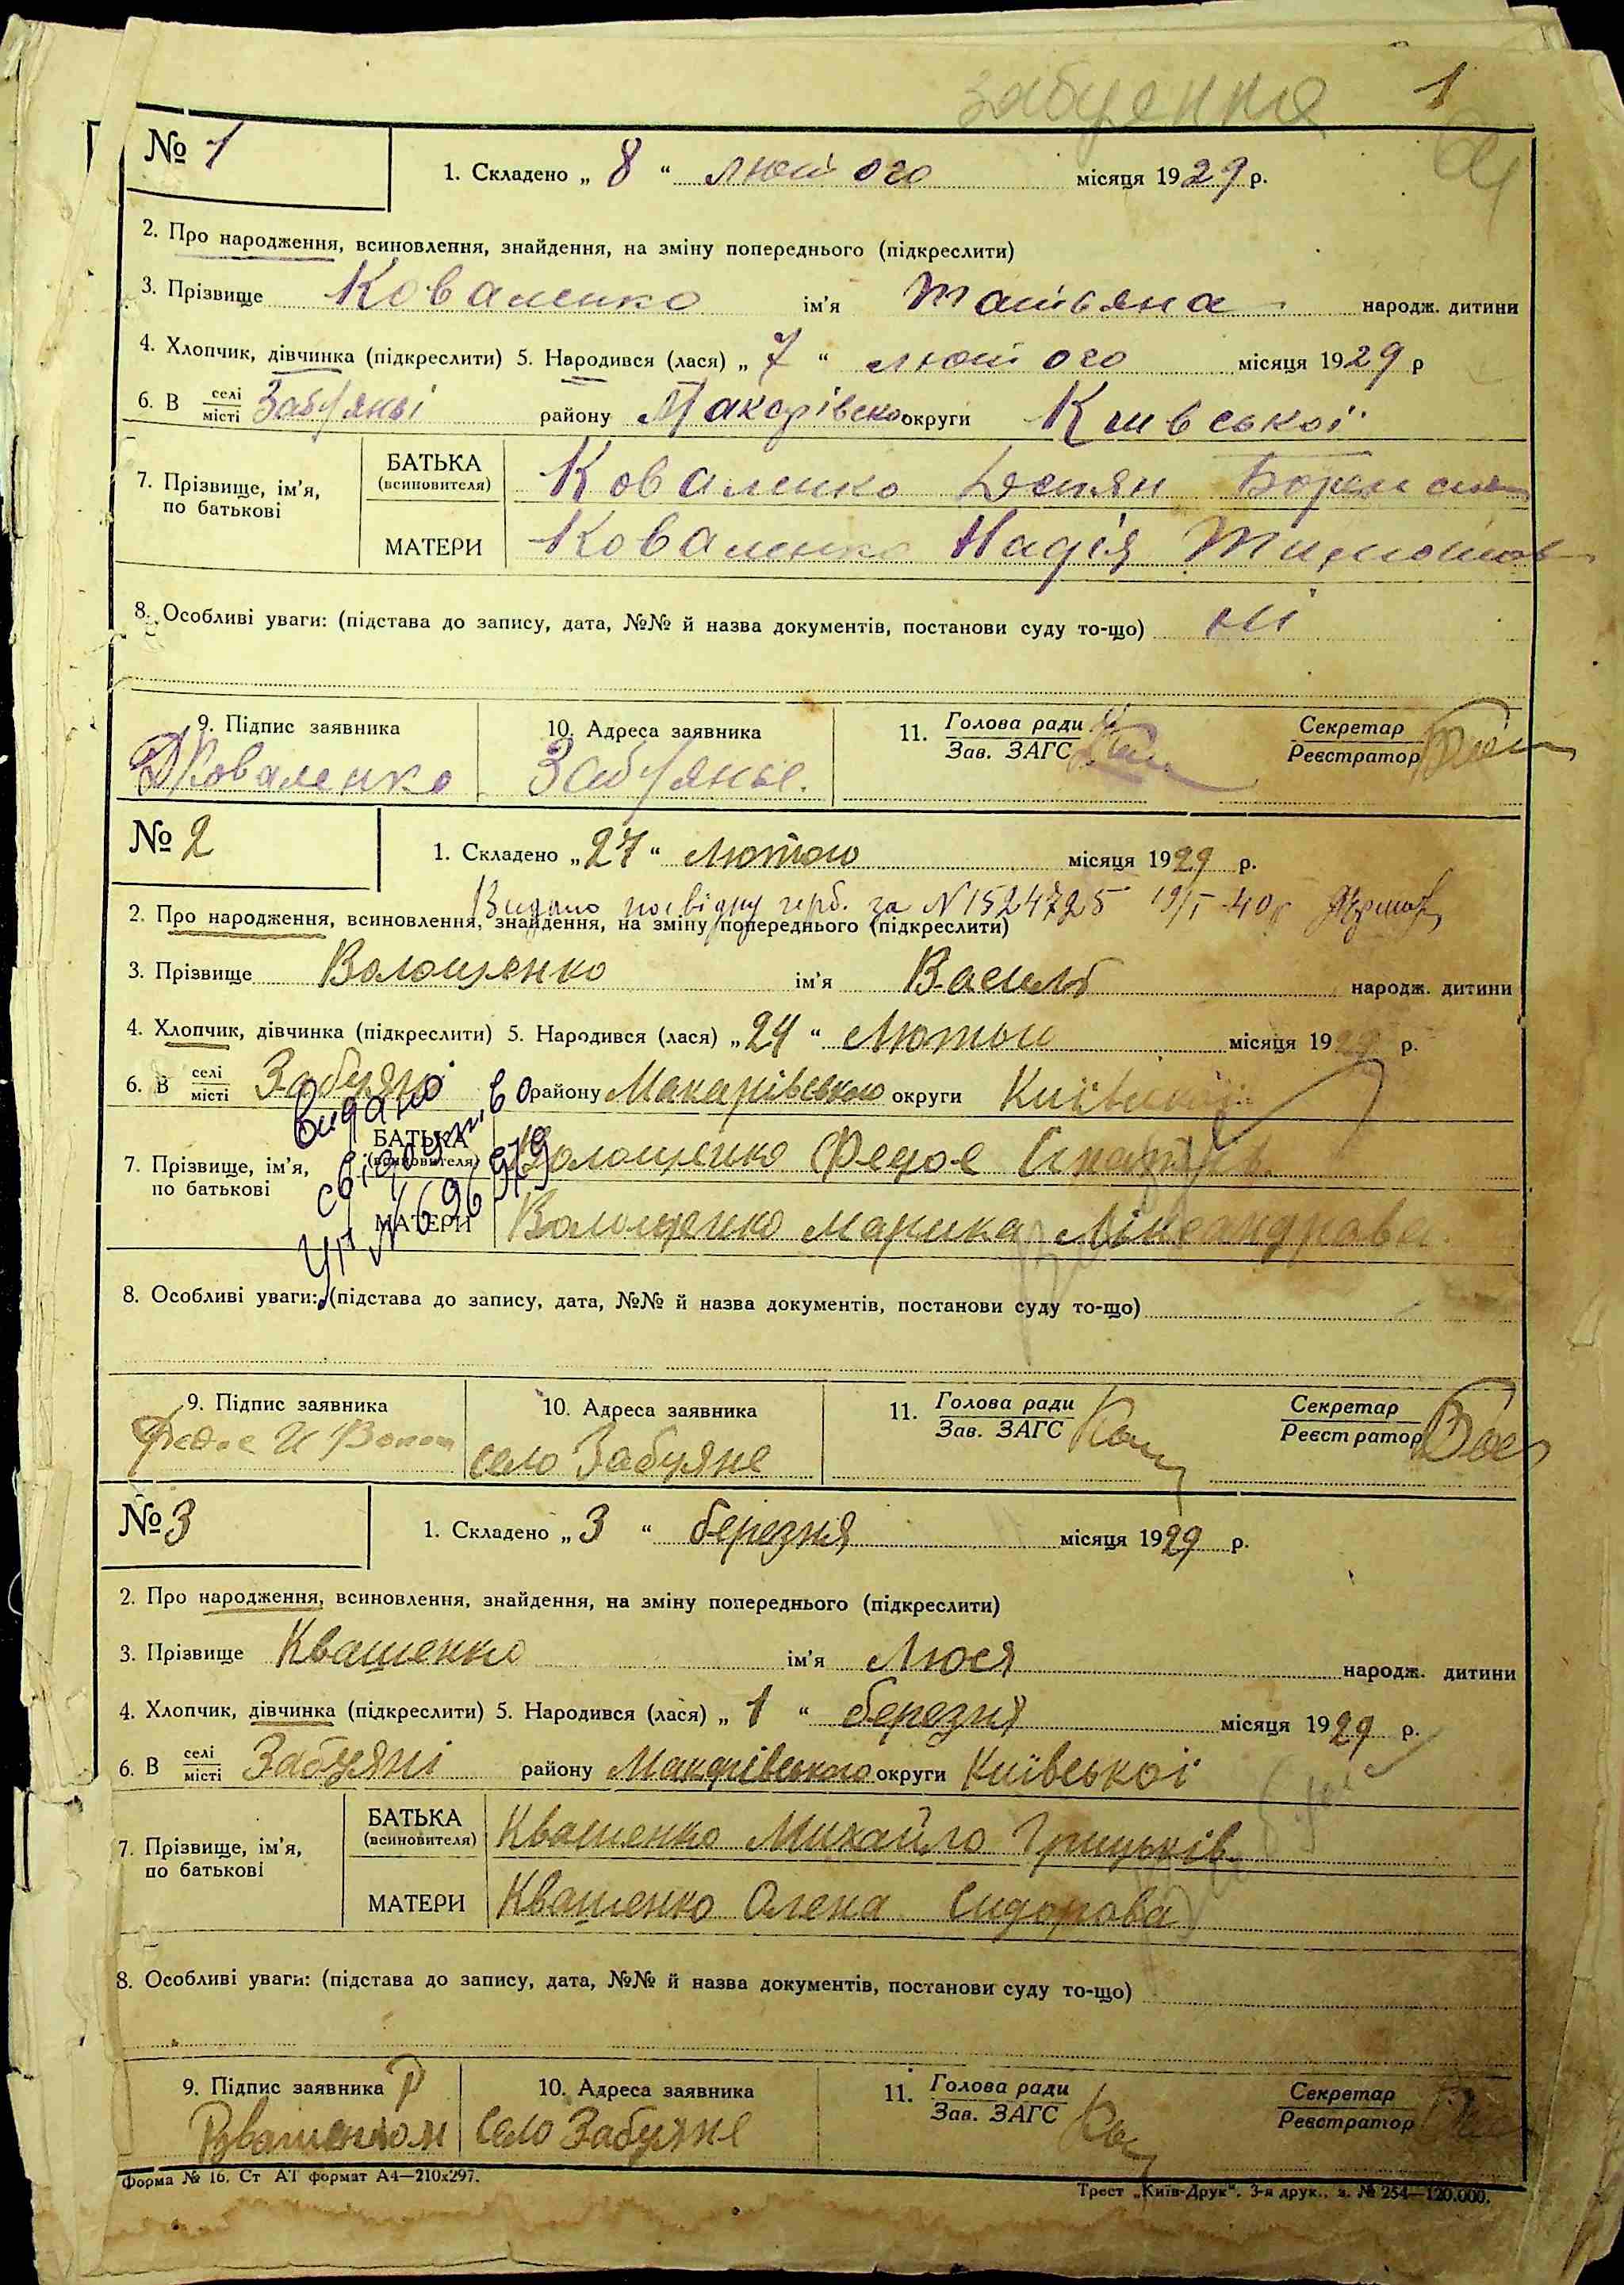 забуяння 1
№ 1
1. Складено „ 8 “ лютого місяця 1929 р.
2. Про народження, всиновлення, знайдення, на зміну попереднього (підкреслити)
3. Прізвище Коваленко ім'я Татьяна народж. дитини
4. Хлопчик, дівчинка (підкреслити) 5. Народився (лася) „ 7 “ лютого місяця 1929 р
6. В селі/місті Забуяньі району Макарівсько округи Киівської
7. Прізвище, ім'я, по батькові
БАТЬКА (всиновителя) Коваленко Демян
МАТЕРИ Коваленко Надія Тимошов
8. Особливі уваги: (підстава до запису, дата, №№ й назва документів, постанови суду то-що) ні
9. Підпис заявника 10. Адреса заявника 11. Голова ради/Зав. ЗАГС Секретар/Реєстратор
ДКоваленко Забуянье.
№ 2
1. Складено „ 27 “ Лютого місяця 1929 р.
Видано посвідку герб. за N 1524725 19/I-40р
2. Про народження, всиновлення, знайдення, на зміну попереднього (підкреслити)
3. Прізвище Волощенко ім'я Василь народж. дитини
4. Хлопчик, дівчинка (підкреслити) 5. Народився (лася) „ 24 “ Лютого місяця 1929 р.
6. В селі/місті Забуяні району Макарівського округи Київської
видано
7. Прізвище, ім'я, по батькові
БАТЬКА (всиновителя) Волощенко Федос
МАТЕРИ Волощенко Марика Ліксандрова
8. Особливі уваги: (підстава до запису, дата, №№ й назва документів, постанови суду то-що)
9. Підпис заявника 10. Адреса заявника 11. Голова ради/Зав. ЗАГС Секретар/Реєстратор
Федос И Волощ село Забуяне
№ 3
1. Складено „ 3 “ березня місяця 1929 р.
2. Про народження, всиновлення, знайдення, на зміну попереднього (підкреслити)
3. Прізвище Квашенко ім'я Люся народж. дитини
4. Хлопчик, дівчинка (підкреслити) 5. Народився (лася) „ 1 “ березня місяця 1929 р.
6. В селі/місті Забуяні району Макарівського округи Київської
7. Прізвище, ім'я, по батькові
БАТЬКА (всиновителя) Квашенко Михайло Грицьків
МАТЕРИ Квашенко Олена Сидорова
8. Особливі уваги: (підстава до запису, дата, №№ й назва документів, постанови суду то-що)
9. Підпис заявника 10. Адреса заявника 11. Голова ради/Зав. ЗАГС Секретар/Реєстратор
село Забуяне
Форма № 16. Ст АТ формат А4—210х297.
Трест „Київ-Друк“. 3-я друк., з. № 254—120.000.